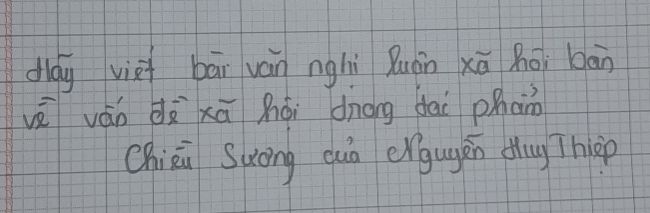 Hãy viết bài văn nghị luận xã hội bàn
về vấn đề xã hội trong tác phẩm
Chiều Sương của Nguyễn Huy Thiệp